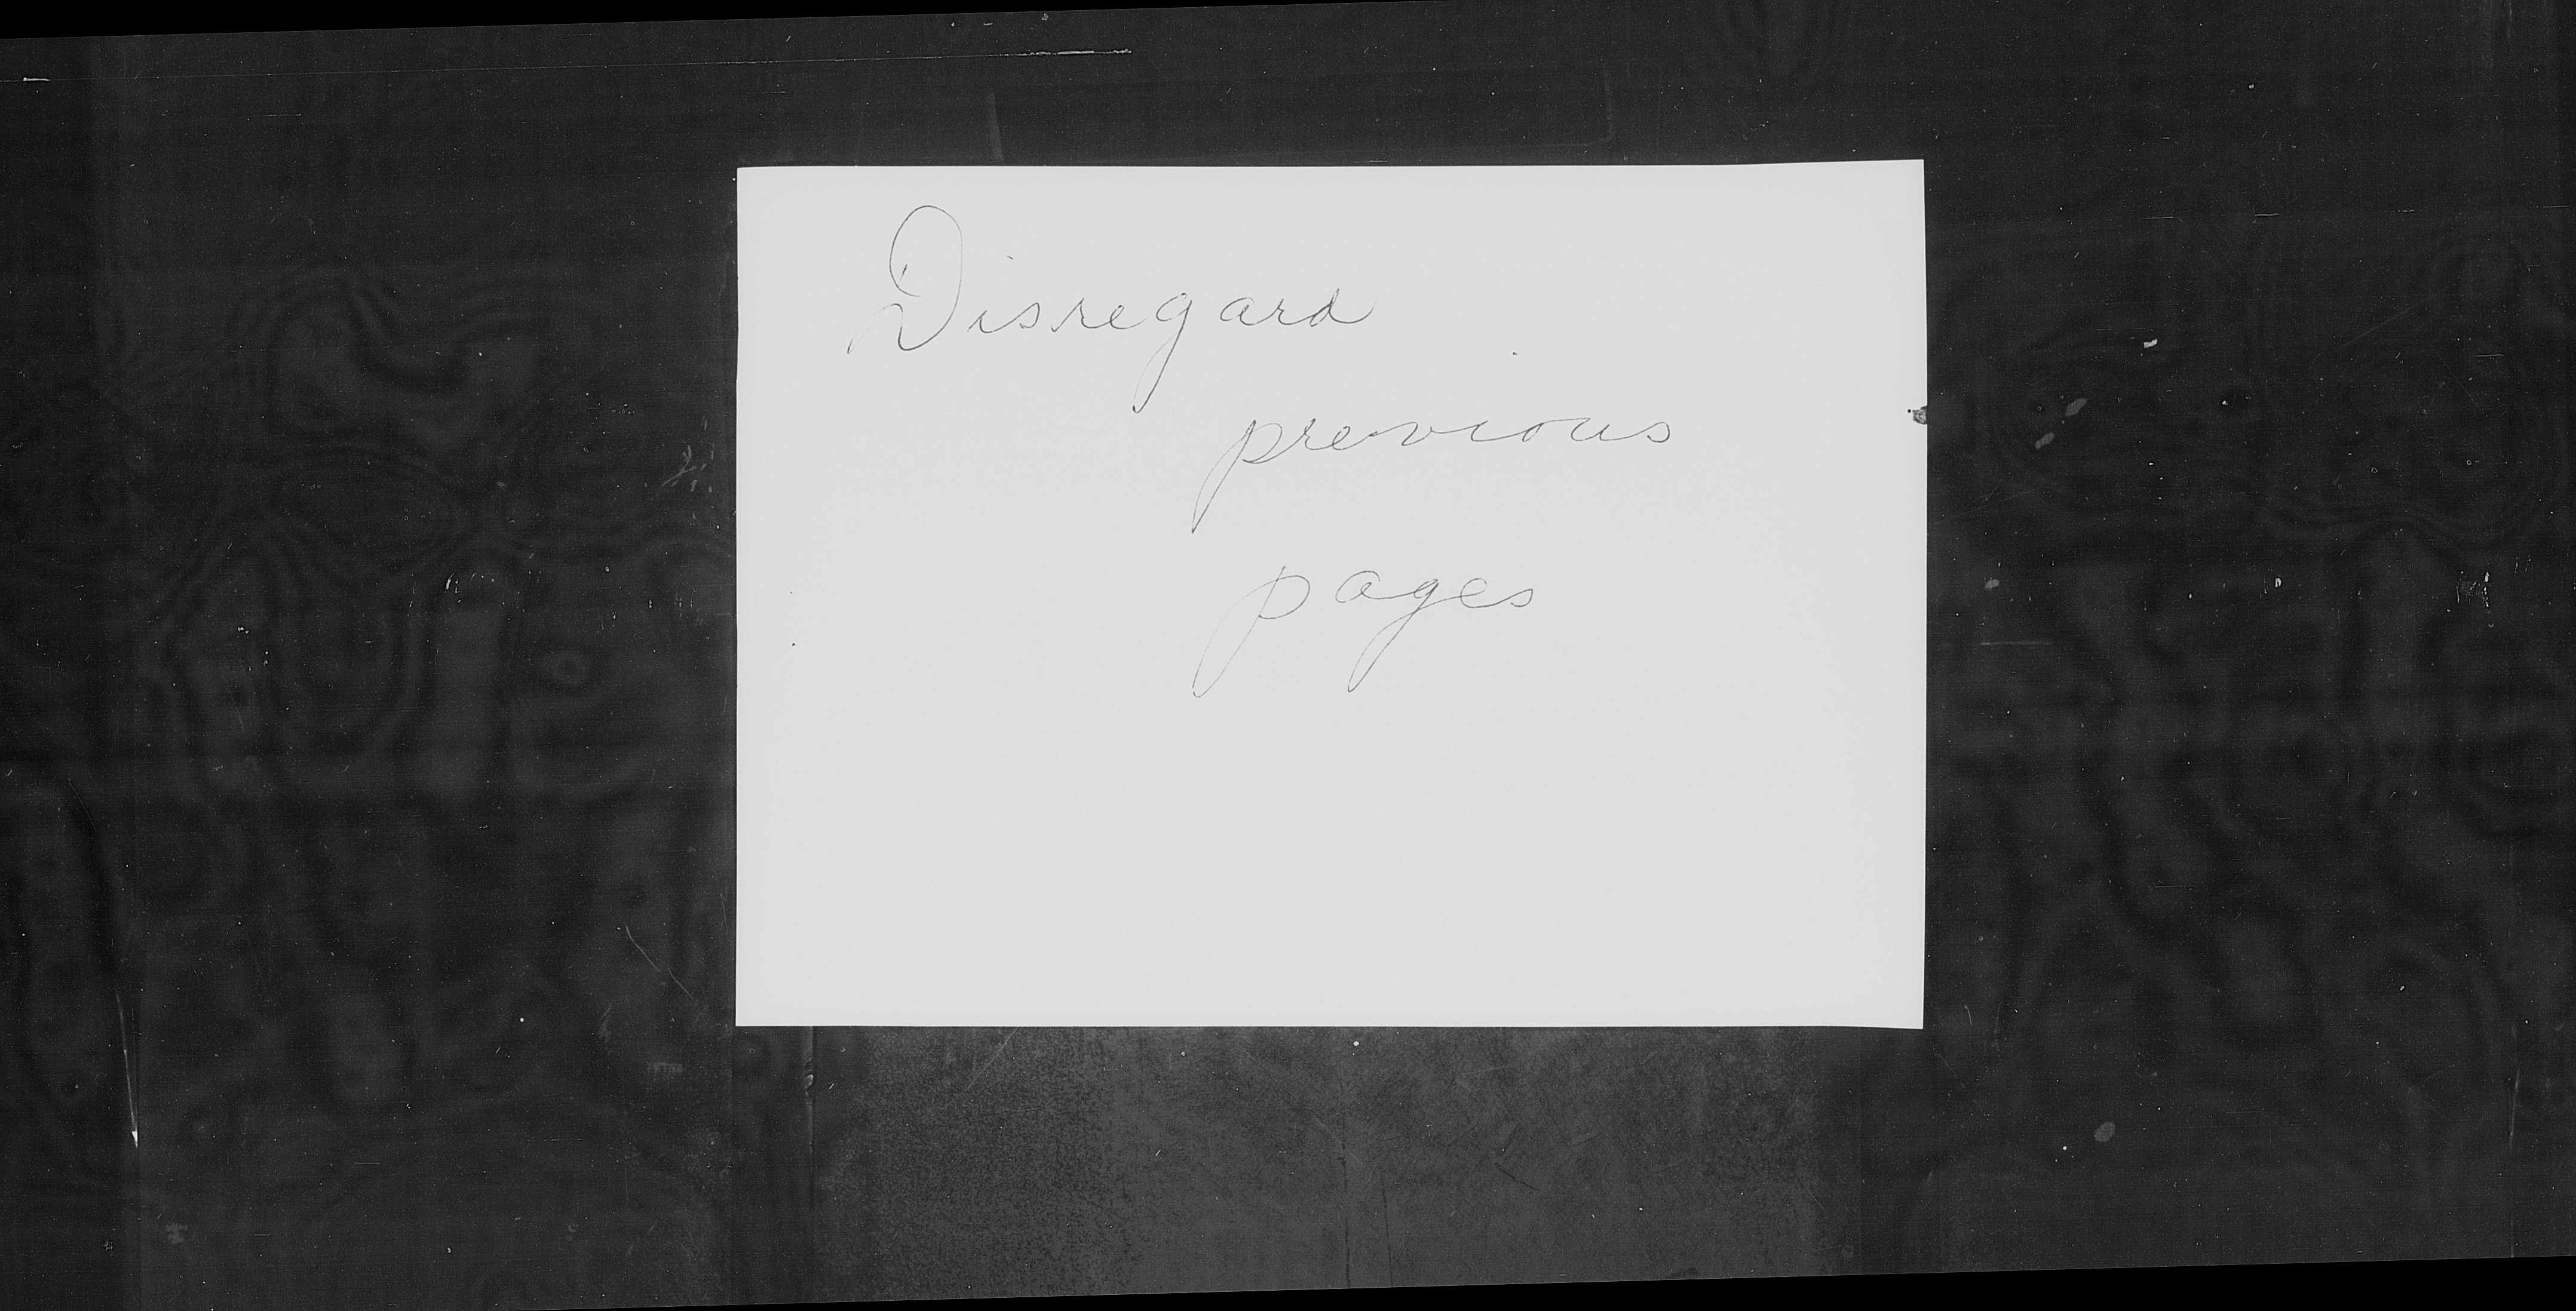 Disregard
previous
pages